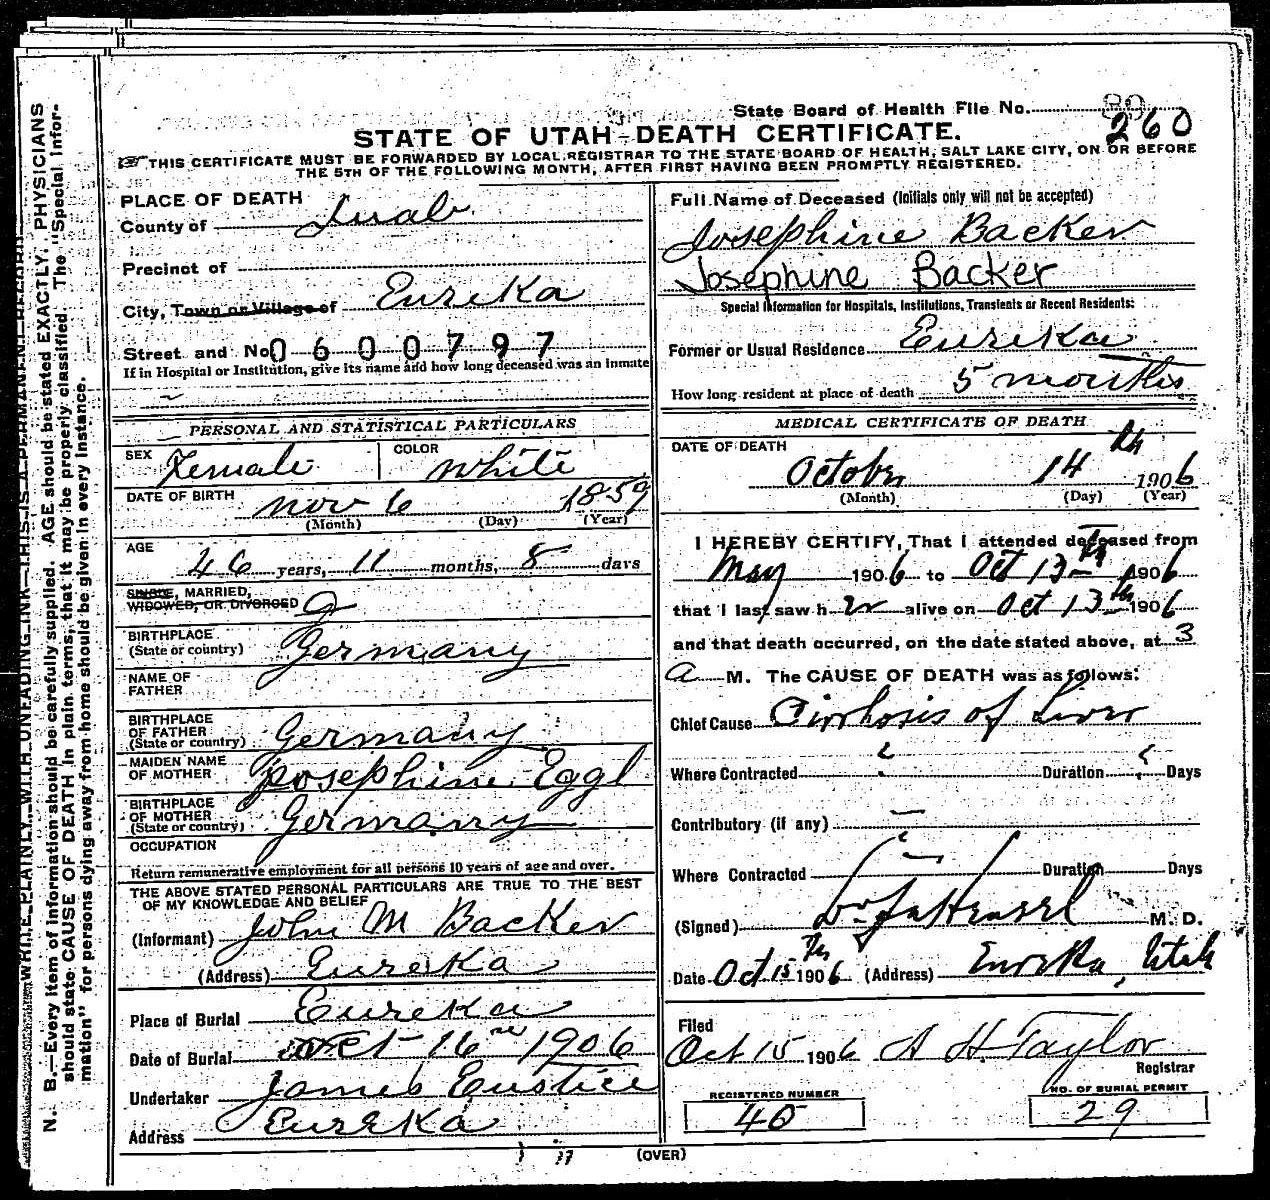 State Board of Health File No. 89
260
STATE OF UTAH-DEATH CERTIFICATE.
THIS CERTIFICATE MUST BE FORWARDED BY LOCAL REGISTRAR TO THE STATE BOARD OF HEALTH, SALT LAKE CITY, ON OR BEFORE
THE 5TH OF THE FOLLOWING MONTH, AFTER FIRST HAVING BEEN PROMPTLY REGISTERED.
N. B.—Every item of information should be carefully supplied. AGE should be stated EXACTLY. PHYSICIANS
should state CAUSE OF DEATH in plain terms, that it may be properly classified. The "Special Infor-
mation" for persons dying away from home should be given in every instance.
WRITE PLAINLY, WITH UNFADING INK—THIS IS A PERMANENT RECORD
PLACE OF DEATH
County of Juab
Precinct of
City, Town or Village of Eureka
Street and No. 0600797
If in Hospital or Institution, give its name and how long deceased was an inmate
PERSONAL AND STATISTICAL PARTICULARS
SEX Female COLOR White
DATE OF BIRTH Nov 6 1859
(Month) (Day) (Year)
AGE
46 years, 11 months, 8 days
SINGLE, MARRIED,
WIDOWED, OR DIVORCED
BIRTHPLACE
(State or country) Germany
NAME OF
FATHER
BIRTHPLACE
OF FATHER
(State or country) Germany
MAIDEN NAME
OF MOTHER Josephine Eggl
BIRTHPLACE
OF MOTHER
(State or country) Germany
OCCUPATION
Return remunerative employment for all persons 10 years of age and over.
THE ABOVE STATED PERSONAL PARTICULARS ARE TRUE TO THE BEST
OF MY KNOWLEDGE AND BELIEF
(Informant) John M Backer
(Address) Eureka
Place of Burial Eureka
Date of Burial Oct 16 1906
Undertaker James Eustice
Address Eureka
Full Name of Deceased (Initials only will not be accepted)
Josephine Backer
Josephine Backer
Special Information for Hospitals, Institutions, Transients or Recent Residents:
Former or Usual Residence Eureka
How long resident at place of death 5 months
MEDICAL CERTIFICATE OF DEATH
DATE OF DEATH
October 14th 1906
(Month) (Day) (Year)
I HEREBY CERTIFY, That I attended deceased from
May 1906 to Oct 13th 1906
that I last saw her alive on Oct 13th 1906
and that death occurred, on the date stated above, at 3
A M. The CAUSE OF DEATH was as follows:
Chief Cause Cirrhosis of Liver
Where Contracted ? Duration ? Days
Contributory (if any) —
Where Contracted ? — Duration Days
(Signed) M. D.
Date Oct 15th 1906 (Address) Eureka, Utah
Filed
Oct 15 1906 A H. Taylor
Registrar
REGISTERED NUMBER
45
NO. OF BURIAL PERMIT
29
(OVER)